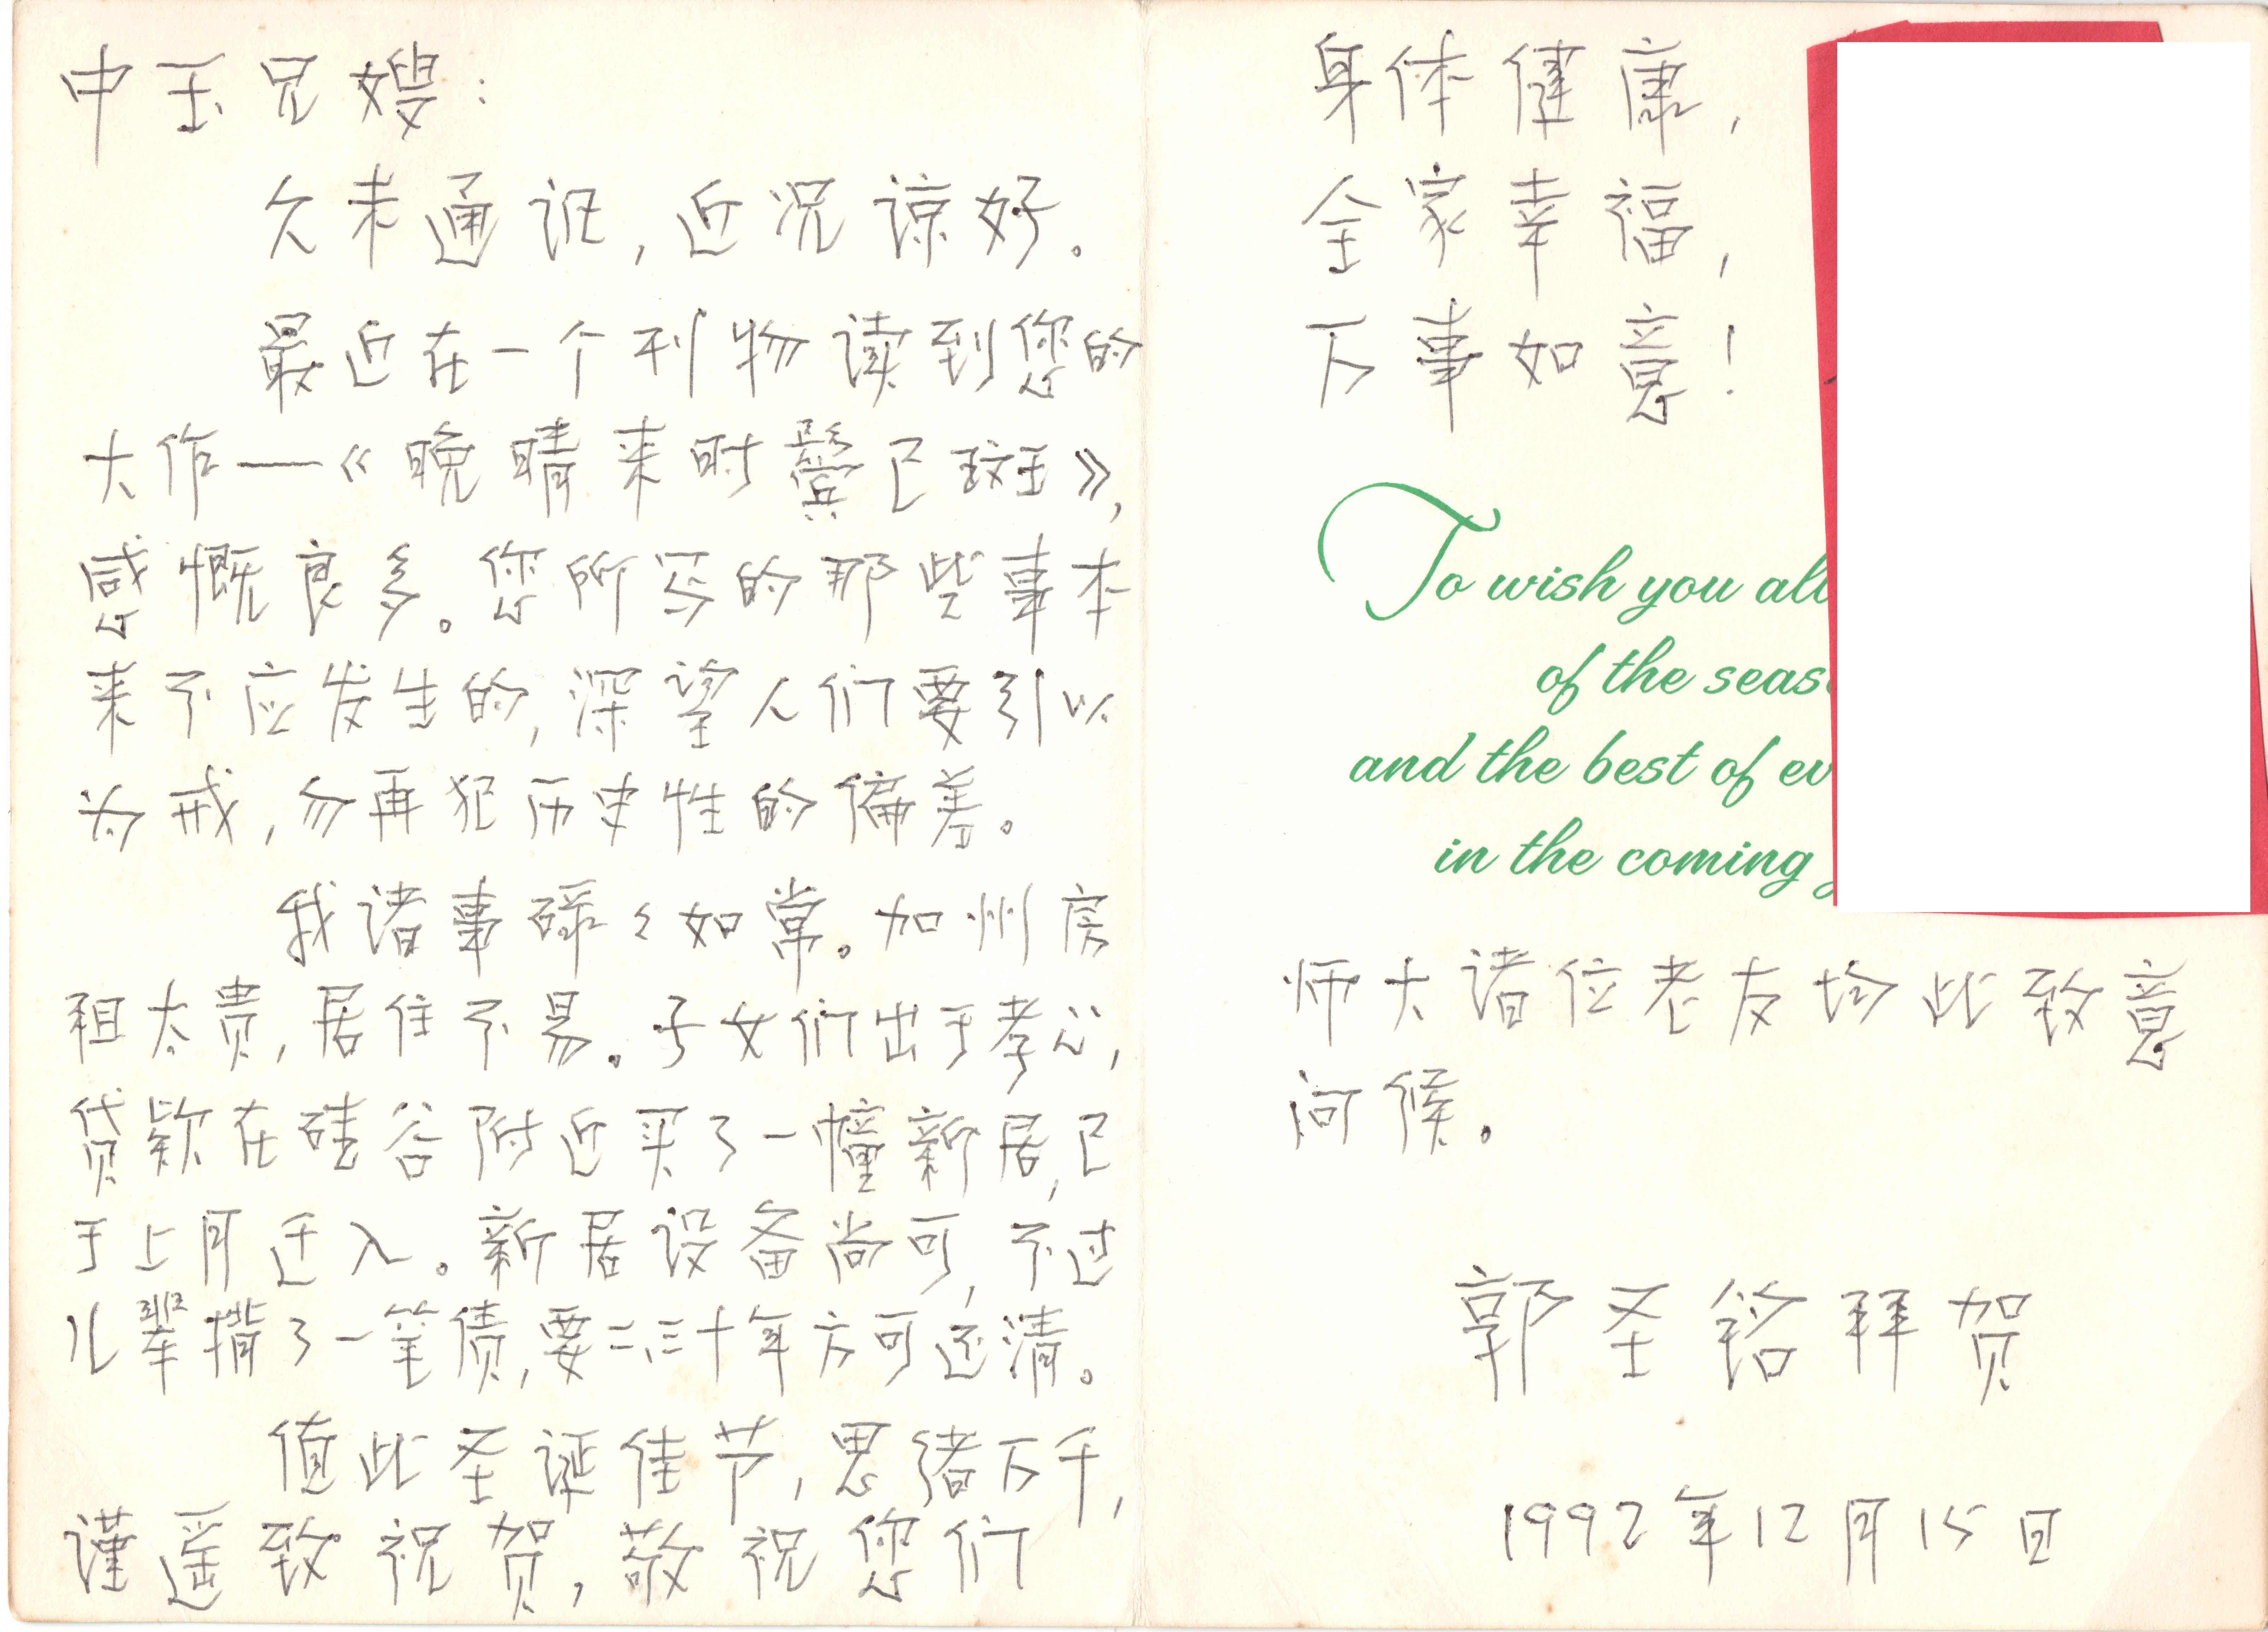 中玉兄嫂：
久未通讯，近况谅好。
最近在一个刊物读到您的
大作—《晚晴来时鬓已斑》，
感慨良多。您所写的那些事本
来不应发生的，深望人们要引以
为戒，勿再犯历史性的偏差。
我诸事碌々如常。加州房
租太贵，居住不易。子女们出于孝心，
贷款在硅谷附近买了一幢新居，已
于上月迁入。新居设备尚可，不过
儿辈揹了一笔债，要二、三十年方可还清。
值此圣诞佳节，思绪万千，
谨遥致祝贺，敬祝您们
身体健康，
全家幸福，
万事如意！
To wish you all
of the seas
and the best of ev
in the coming
师大诸位老友均此致意
问候。
郭圣铭拜贺
1992年12月15日